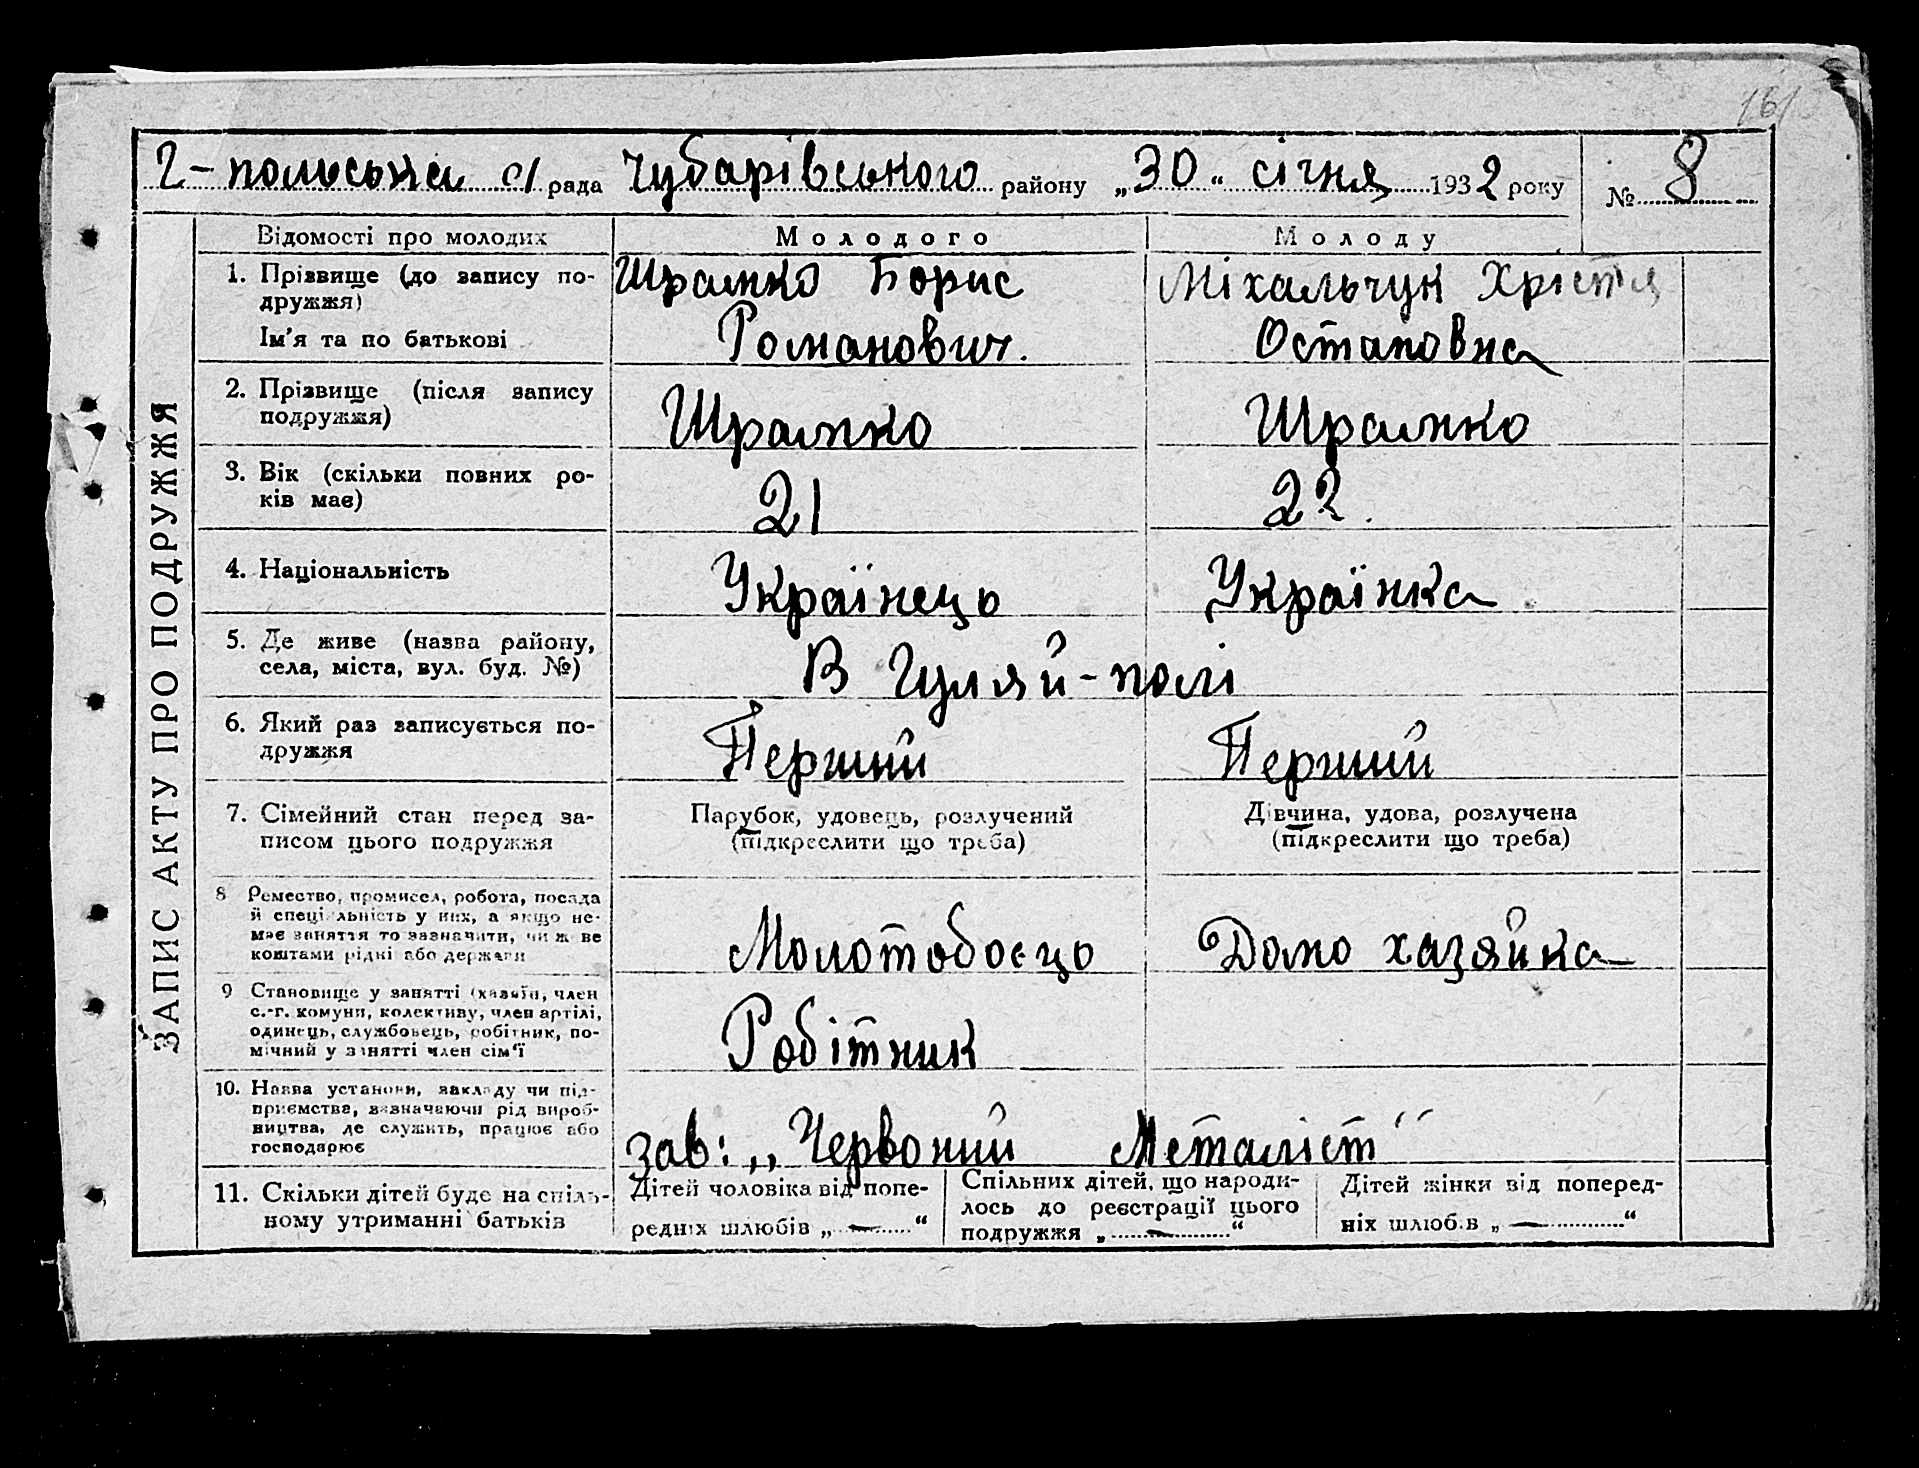 161
Г-польська с/рада Чубарівського району „30“ січня 1932 року № 8
ЗАПИС АКТУ ПРО ПОДРУЖЖЯ
Відомості про молодих
Молодого
Молоду
1. Прізвище (до запису по-
дружжя)
Ім'я та по батькові
Шрамко Борис
Романович.
Міхальчук Хрістя
Остаповна
2. Прізвище (після запису
подружжя)
Шрамко
Шрамко
3. Вік (скільки повних ро-
ків має)
21
22.
4. Національність
Українець
Українка
5. Де живе (назва району,
села, міста, вул. буд. №)
В Гуляй-полі
6. Який раз записується по-
дружжя
Перший
Перший
7. Сімейний стан перед за-
писом цього подружжя
Парубок, удовець, розлучений
(підкреслити що треба)
Дівчина, удова, розлучена
(підкреслити що треба)
8 Ремество, промисел, робота, посада
й спеціальність у них, а якщо не-
має заняття то зазначити, чиїми
коштами рідні або держави
Молотобоєць
Домо хазяйка
9 Становище у занятті (хазяїн, член
с.-г. комуни, колективу, член артілі,
одинець, службовець, робітник, по-
мічний у занятті член сім'ї
Робітник
10. Назва установи, закладу чи під-
приємства, зазначаючи рід вироб-
ництва, де служить, працює або
господарює
зав: „Червоний Металіст"
11. Скільки дітей буде на спіль-
ному утриманні батьків
Дітей чоловіка від попе-
редніх шлюбів „ — “
Спільних дітей, що народи-
лось до реєстрації цього
подружжя „ — “
Дітей жінки від поперед-
ніх шлюбів „ — “